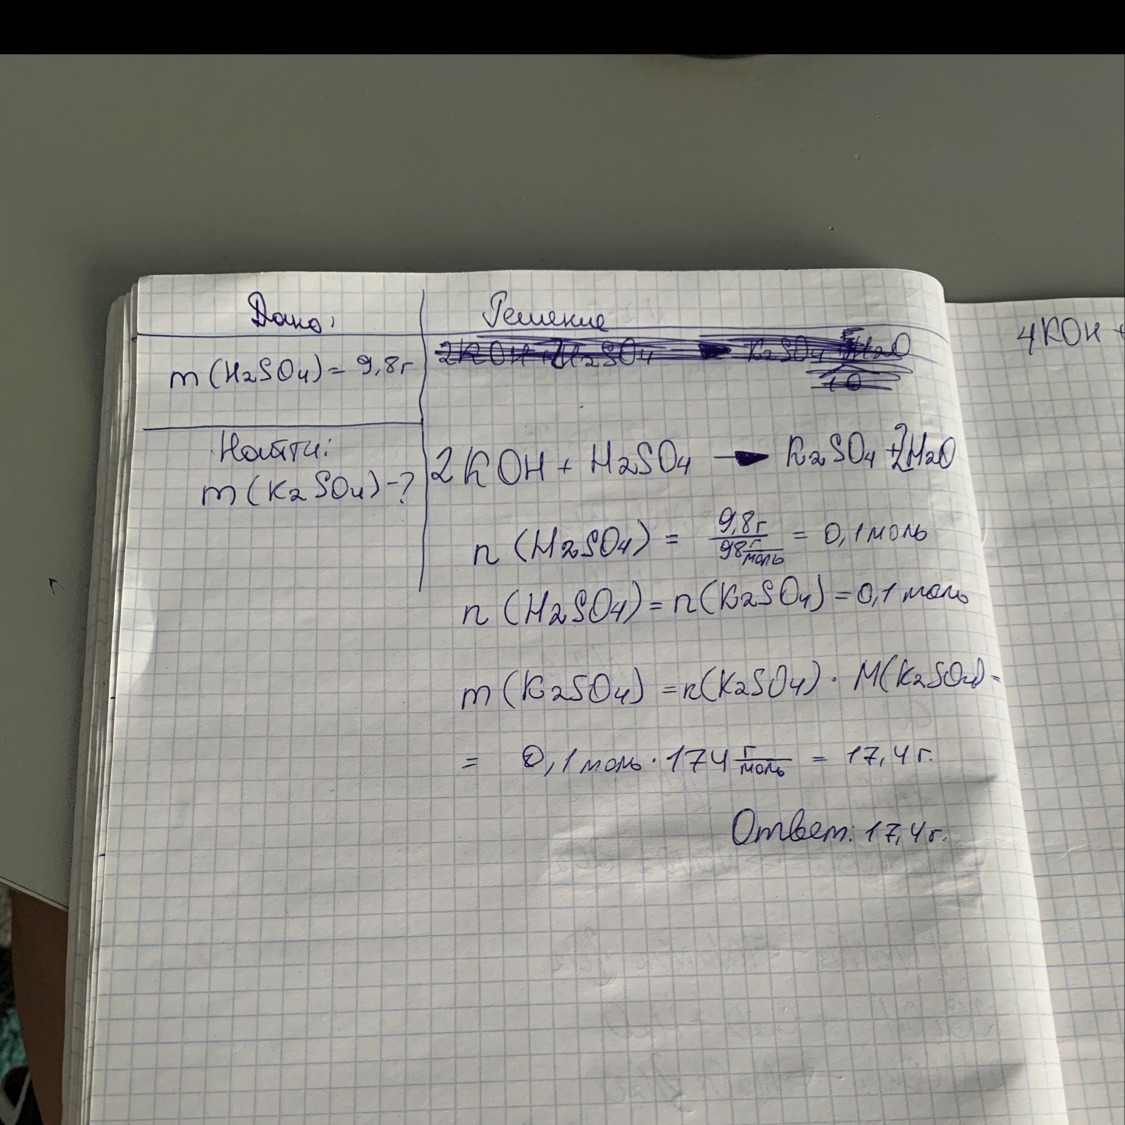 Дано:
m (H2SO4) = 9,8г
Найти:
m (K2SO4) -?
Решение
2KOH + H2SO4 → K2SO4 + 2H2O
n (H2SO4) = 9,8г / 98 г/моль = 0,1 моль
n (H2SO4) = n(K2SO4) = 0,1 моль
m (K2SO4) = n(K2SO4) · M(K2SO4) =
= 0,1 моль · 174 г/моль = 17,4 г.
Ответ: 17,4 г.
4KOH +